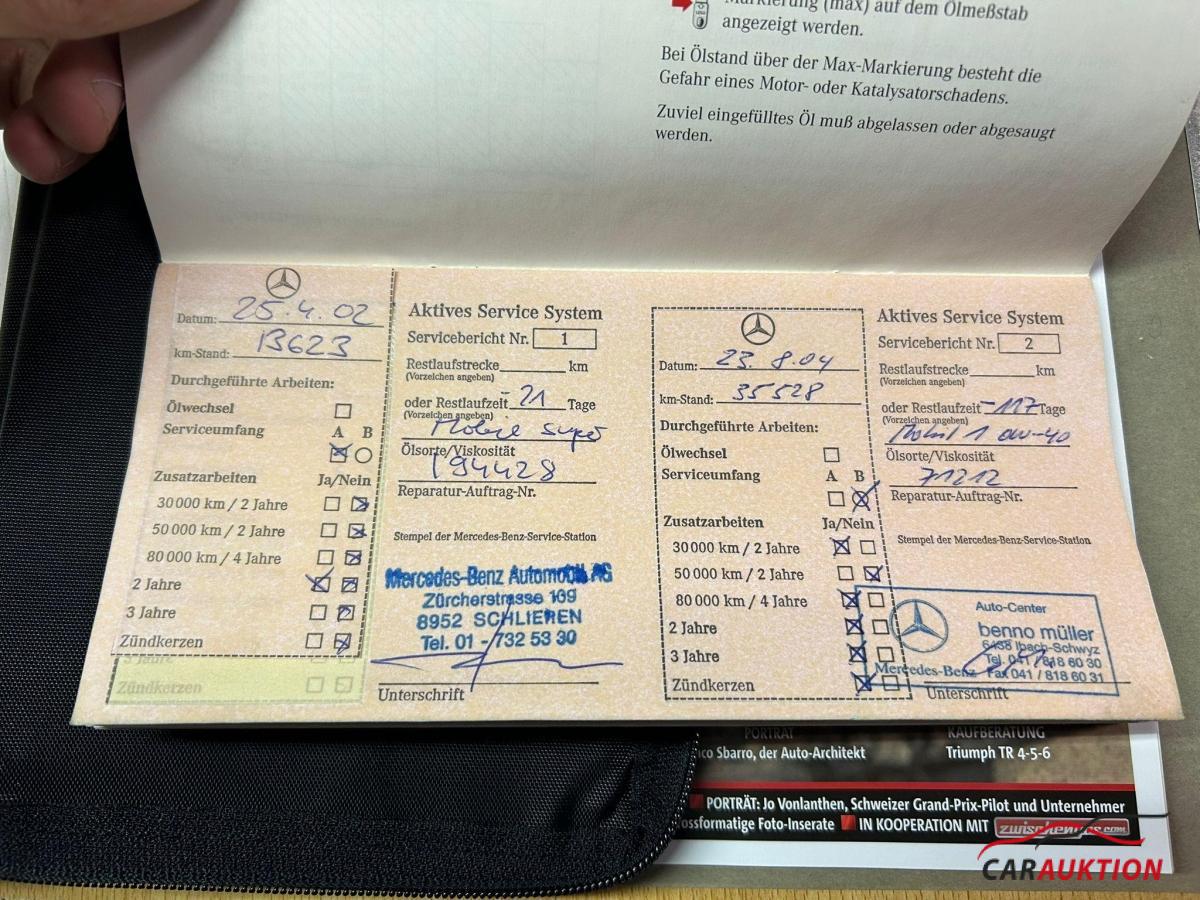 Markierung (max) auf dem Ölmeßstab
angezeigt werden.
Bei Ölstand über der Max-Markierung besteht die
Gefahr eines Motor- oder Katalysatorschadens.
Zuviel eingefülltes Öl muß abgelassen oder abgesaugt
werden.
Datum: 25.4.02
km-Stand: 13623
Durchgeführte Arbeiten:
Ölwechsel
Serviceumfang A B
Zusatzarbeiten Ja/Nein
30 000 km / 2 Jahre
50 000 km / 2 Jahre
80 000 km / 4 Jahre
2 Jahre
3 Jahre
Zündkerzen
3 Jahre
Zündkerzen
Aktives Service System
Servicebericht Nr. 1
Restlaufstrecke km
(Vorzeichen angeben)
oder Restlaufzeit -21 Tage
(Vorzeichen angeben)
Mobil super
Ölsorte/Viskosität
194428
Reparatur-Auftrag-Nr.
Stempel der Mercedes-Benz-Service-Station
Mercedes-Benz Automobil AG
Zürcherstrasse 109
8952 SCHLIEREN
Tel. 01 - 732 53 30
Unterschrift
Datum: 23.8.04
km-Stand: 35528
Durchgeführte Arbeiten:
Ölwechsel
Serviceumfang A B
Zusatzarbeiten Ja/Nein
30 000 km / 2 Jahre
50 000 km / 2 Jahre
80 000 km / 4 Jahre
2 Jahre
3 Jahre
Zündkerzen
Aktives Service System
Servicebericht Nr. 2
Restlaufstrecke km
(Vorzeichen angeben)
oder Restlaufzeit -117 Tage
(Vorzeichen angeben)
Mobil 1 0W-40
Ölsorte/Viskosität
71212
Reparatur-Auftrag-Nr.
Stempel der Mercedes-Benz-Service-Station
Auto-Center
benno müller
6438 Ibach-Schwyz
Tel. 041 / 818 60 30
Mercedes-Benz Fax 041 / 818 60 31
Unterschrift
PORTRÄT
Sbarro, der Auto-Architekt
KAUFBERATUNG
Triumph TR 4-5-6
PORTRÄT: Jo Vonlanthen, Schweizer Grand-Prix-Pilot und Unternehmer
Foto-Inserate IN KOOPERATION MIT zwischengas.com
CARAUKTION